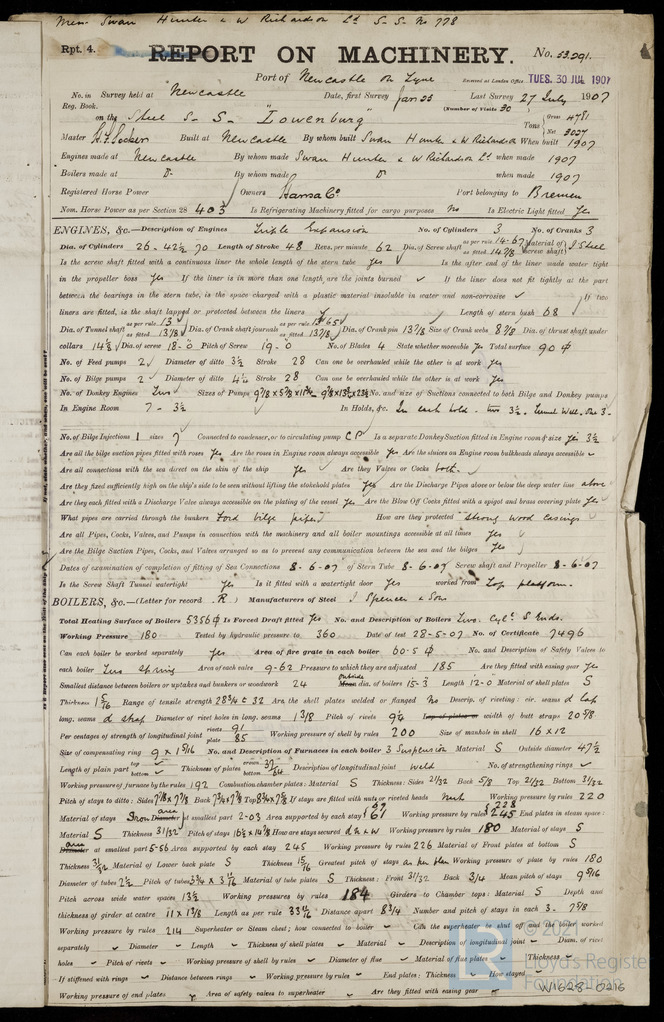 Mess. Swan Hunter & W Richardson Ld S-S. No 778
Rpt. 4. REPORT ON MACHINERY. No. 53291.
Port of Newcastle on Tyne Received at London Office TUES. 30 JUL 1907
No. in Survey held at Newcastle Date, first Survey Jan 23 Last Survey 27 July 1907
Reg. Book. (Number of Visits 30
on the Steel S-S- "Lowenburg" Tons Gross 4781 Net 3027
Master Built at Newcastle By whom built Swan Hunter & W Richardson When built 1907
Engines made at Newcastle By whom made Swan Hunter & W Richardson Ld when made 1907
Boilers made at Do By whom made Do when made 1907
Registered Horse Power Owners Hansa Co Port belonging to Bremen
Nom. Horse Power as per Section 28 403 Is Refrigerating Machinery fitted for cargo purposes No Is Electric Light fitted Yes
ENGINES, &c.—Description of Engines Triple Expansion No. of Cylinders 3 No. of Cranks 3
Dia. of Cylinders 26-42½-70 Length of Stroke 48 Revs. per minute 62 Dia. of Screw shaft as per rule 14-67 as fitted 14 7/8 Material of screw shaft) I Steel
Is the screw shaft fitted with a continuous liner the whole length of the stern tube yes Is the after end of the liner made water tight
in the propeller boss yes If the liner is in more than one length are the joints burned ✓ If the liner does not fit tightly at the part
between the bearings in the stern tube, is the space charged with a plastic material insoluble in water and non-corrosive ✓ If two
liners are fitted, is the shaft lapped or protected between the liners Length of stern bush 68
Dia. of Tunnel shaft as per rule 13 as fitted 13 7/8 Dia. of Crank shaft journals as per rule 13.65 as fitted 13 7/8 Dia. of Crank pin 13 7/8 Size of Crank webs 8 7/8 Dia. of thrust shaft under
collars 14 1/8 Dia. of screw 18-0 Pitch of Screw 19-0 No. of Blades 4 State whether moveable Yes Total surface 90
No. of Feed pumps 2 Diameter of ditto 3½ Stroke 28 Can one be overhauled while the other is at work yes
No. of Bilge pumps 2 Diameter of ditto 4½ Stroke 28 Can one be overhauled while the other is at work yes
No. of Donkey Engines Two Sizes of Pumps No. and size of Suctions connected to both Bilge and Donkey pumps
In Engine Room 7-3½ In Holds, &c. In each hold. two 3½. Tunnel Well. One 3-
No. of Bilge Injections 1 sizes 7 Connected to condenser, or to circulating pump CP Is a separate Donkey Suction fitted in Engine room & size yes 3½
Are all the bilge suction pipes fitted with roses Yes Are the roses in Engine room always accessible Yes Are the sluices on Engine room bulkheads always accessible ✓
Are all connections with the sea direct on the skin of the ship yes Are they Valves or Cocks both.
Are they fixed sufficiently high on the ship's side to be seen without lifting the stokehold plates Yes Are the Discharge Pipes above or below the deep water line above
Are they each fitted with a Discharge Valve always accessible on the plating of the vessel Yes Are the Blow Off Cocks fitted with a spigot and brass covering plate Yes
What pipes are carried through the bunkers Ford bilge pipes How are they protected Strong wood casings
Are all Pipes, Cocks, Valves, and Pumps in connection with the machinery and all boiler mountings accessible at all times Yes
Are the Bilge Suction Pipes, Cocks, and Valves arranged so as to prevent any communication between the sea and the bilges Yes
Dates of examination of completion of fitting of Sea Connections 8-6-07 of Stern Tube 8-6-07 Screw shaft and Propeller 8-6-07
Is the Screw Shaft Tunnel watertight Yes Is it fitted with a watertight door Yes worked from Top platform.
BOILERS, &c.—(Letter for record R) Manufacturers of Steel J Spencer & Son
Total Heating Surface of Boilers 5356 Is Forced Draft fitted Yes No. and Description of Boilers Two. Cyl. S Ends.
Working Pressure 180 Tested by hydraulic pressure to 360 Date of test 28-5-07 No. of Certificate 7496
Can each boiler be worked separately yes Area of fire grate in each boiler 60.5 No. and Description of Safety Valves to
each boiler Two Spring Area of each valve 9-62 Pressure to which they are adjusted 185 Are they fitted with easing gear Yes
Smallest distance between boilers or uptakes and bunkers or woodwork 24 outside Mean dia. of boilers 15-3 Length 12-0 Material of shell plates S
Thickness 1 5/16 Range of tensile strength 28¾ & 32 Are the shell plates welded or flanged No Descrip. of riveting: cir. seams d lap
long. seams d strap Diameter of rivet holes in long. seams 1 3/8 Pitch of rivets 9¼ Lap of plates or width of butt straps 20 7/8
Per centages of strength of longitudinal joint rivets 91 plate 85 Working pressure of shell by rules 200 Size of manhole in shell 16 x 12
Size of compensating ring 9 x 1 5/16 No. and Description of Furnaces in each boiler 3 Suspension Material S Outside diameter 47½
Length of plain part top bottom Thickness of plates crown bottom 37/64 Description of longitudinal joint weld No. of strengthening rings ✓
Working pressure of furnace by the rules 192 Combustion chamber plates: Material S Thickness: Sides 21/32 Back 5/8 Top 21/32 Bottom 31/32
Pitch of stays to ditto: Sides Back Top If stays are fitted with nuts or riveted heads Nuts Working pressure by rules 220
Material of stays Iron area Diameter at smallest part 2-03 Area supported by each stay Working pressure by rules 228 245 End plates in steam space:
Material S Thickness 31/32 Pitch of stays How are stays secured d n & w Working pressure by rules 180 Material of stays S
area Diameter at smallest part 5-56 Area supported by each stay 245 Working pressure by rules 226 Material of Front plates at bottom S
Thickness 31/32 Material of Lower back plate S Thickness 15/16 Greatest pitch of stays as per plan Working pressure of plate by rules 180
Diameter of tubes 2½ Pitch of tubes Material of tube plates S Thickness: Front 31/32 Back 3/4 Mean pitch of stays 9 5/16
Pitch across wide water spaces 13½ Working pressures by rules 184 Girders to Chamber tops: Material S Depth and
thickness of girder at centre 11 x 1 3/8 Length as per rule Distance apart 8¾ Number and pitch of stays in each 3. 7 7/8
Working pressure by rules 214 Superheater or Steam chest; how connected to boiler ✓ Can the superheater be shut off and the boiler worked
separately ✓ Diameter ✓ Length ✓ Thickness of shell plates ✓ Material ✓ Description of longitudinal joint ✓ Diam. of rivet
holes ✓ Pitch of rivets ✓ Working pressure of shell by rules ✓ Diameter of flue ✓ Material of flue plates ✓ Thickness ✓
If stiffened with rings ✓ Distance between rings ✓ Working pressure by rules ✓ End plates: Thickness ✓ How stayed
Working pressure of end plates ✓ Area of safety valves to superheater ✓ Are they fitted with easing gear ✓
© 2021
Lloyd's Register
Foundation
W1628-0216